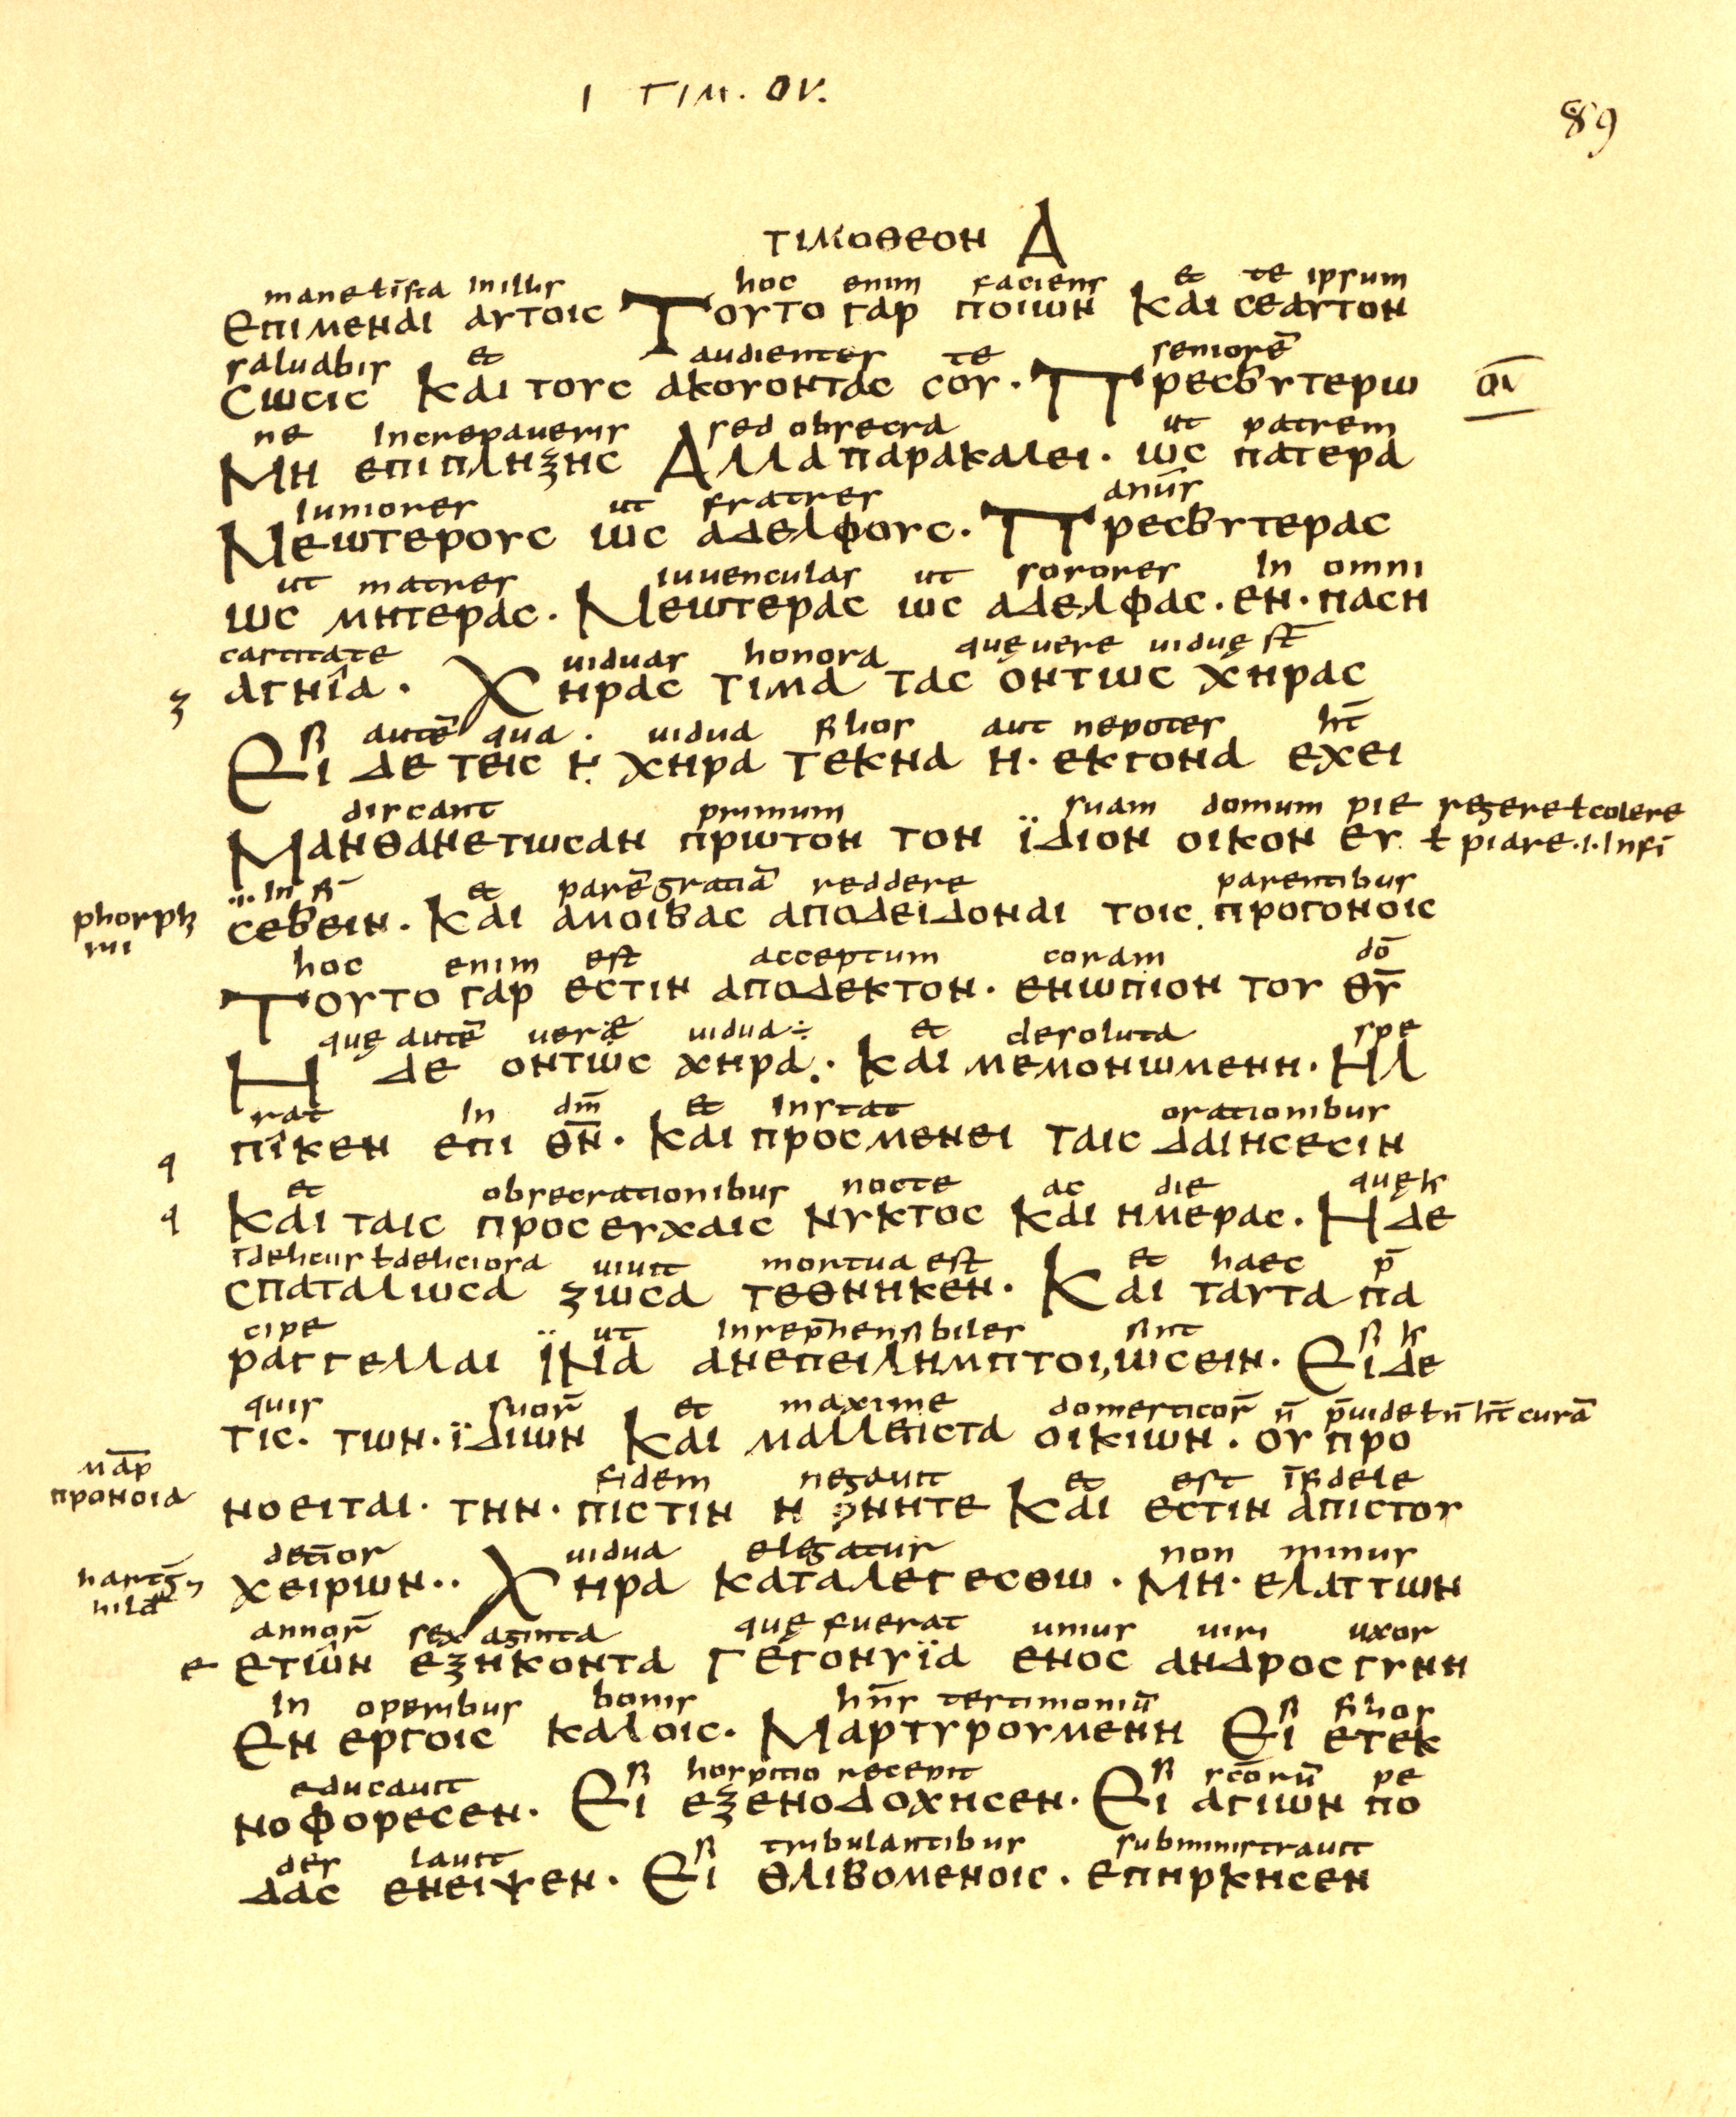 Ι ΤΙΜ. ΟV.
89
ΤΙΜΟΘΕΟΝ Α
manet ista in illis hoc enim faciens et te ipsum
ΕΠΙΜΕΝΑΙ ΑΥΤΟΙC ΤΟΥΤΟ ΓΑΡ ΠΟΙΩΝ ΚΑΙ CΕΑΥΤΟΝ
saluabis et audientes te seniorē
CΩCΙC ΚΑΙ ΤΟΥC ΑΚΟΥΟΝΤΑC CΟΥ· ΠΡΕCΒΥΤΕΡΩ
ne increpaueris sed obsecra ut patrem
ΜΗ ΕΠΙΠΛΗΞΗC ΑΛΛΑ ΠΑΡΑΚΑΛΕΙ· ΩC ΠΑΤΕΡΑ
iuniores ut fratres anūs
ΝΕΩΤΕΡΟΥC ΩC ΑΔΕΛΦΟΥC· ΠΡΕCΒΥΤΕΡΑC
ut matres iuuenculas ut sorores in omni
ΩC ΜΗΤΕΡΑC· ΝΕΩΤΕΡΑC ΩC ΑΔΕΛΦΑC· ΕΝ· ΠΑCΗ
castitate uiduas honora quę uere uiduę st̄
ΑΓΝΙΑ· ΧΗΡΑC ΤΙΜΑ ΤΑC ΟΝΤΩC ΧΗΡΑC
si autē qua· uidua filios aut nepotes ht̄
ΕΙ ΔΕ ΤΕΙC Η ΧΗΡΑ ΤΕΚΝΑ Η· ΕΚΓΟΝΑ ΕΧΕΙ
discant primum suam domum pie regere ł colere
ΜΑΝΘΑΝΕΤΩCΑΝ ΠΡΩΤΟΝ ΤΟΝ ΪΔΙΟΝ ΟΙΚΟΝ ΕΥ ł piare·i·infi
et parē gratiā reddere parentibus
CΕΒΕΙΝ· ΚΑΙ ΑΜΟΙΒΑC ΑΠΟΔΕΙΔΟΝΑΙ ΤΟΙC ΠΡΟΓΟΝΟΙC
hoc enim est acceptum coram dō
ΤΟΥΤΟ ΓΑΡ ΕCΤΙΝ ΑΠΟΔΕΚΤΟΝ· ΕΝΩΠΙΟΝ ΤΟΥ Θ̄Ῡ
quę autē uere uidua ÷ et desoluta spe
Η ΔΕ ΟΝΤΩC ΧΗΡΑ· ΚΑΙ ΜΕΜΟΝΩΜΕΝΗ· ΗΛ
rat in dm̄ et instat orationibus
ΠΙΚΕΝ ΕΠΙ Θ̄Ν̄· ΚΑΙ ΠΡΟCΜΕΝΕΙ ΤΑΙC ΔΑΙΗCΕCΙΝ
et obsecrationibus nocte ac die
ΚΑΙ ΤΑΙC ΠΡΟCΕΥΧΑΙC ΝΥΚΤΟC ΚΑΙ ΗΜΕΡΑC· Η ΔΕ
ł deliciosa uiuit mortua est et haec p̄
CΠΑΤΑΛΩCΑ ΖΩCΑ ΤΕΘΝΗΚΕΝ· ΚΑΙ ΤΑΥΤΑ ΠΑ
cipe ut inrep̄hensibiles sint si
ΡΑΓΓΕΛΛΑΙ ΪΝΑ ΑΝΕΠΕΙΛΗΜΠΤΟΙ,ΩCΕΙΝ· ΕΙ ΔΕ
quis suor̄ et maxime domesticor̄ n̄ p̄uidet ł n̄ ht̄ curā
ΤΙC· ΤΩΝ· ΪΔΙΩΝ ΚΑΙ ΜΑΛΛΕΙCΤΑ ΟΙΚΙΩΝ· ΟΥ ΠΡΟ
ΠΡΟΝΟΙΑ
fidem negauit et est īfidele
ΝΟΕΙΤΑΙ· ΤΗΝ· ΠΙCΤΙΝ Η ΡΝΗΤΕ ΚΑΙ ΕCΤΙΝ ΑΠΙCΤΟΥ
uidua elegatur non minus
ΧΕΙΡΩΝ·· ΧΗΡΑ ΚΑΤΑΛΕΓΕCΘΩ· ΜΗ· ΕΛΑΤΤΩΝ
annor̄ sexaginta quę fuerat unius uiri uxor
ΕΤΩΝ ΕΞΗΚΟΝΤΑ ΓΕΓΟΝΥΪΑ ΕΝΟC ΑΝΔΡΟC ΓΥΝΗ
in operibus bonis hn̄s testimoniū si filios
ΕΝ ΕΡΓΟΙC ΚΑΛΟΙC· ΜΑΡΤΥΡΟΥΜΕΝΗ ΕΙ ΕΤΕΚ
educauit si hospitio recepit si sc̄orū pe
ΝΟΦΟΡΕCΕΝ· ΕΙ ΕΞΕΝΟΔΟΧΗCΕΝ· ΕΙ ΑΓΙΩΝ ΠΟ
des lauit si tribulantibus subministrauit
ΔΑC ΕΝΕΙΨΕΝ· ΕΙ ΘΛΙΒΟΜΕΝΟΙC· ΕΠΗΡΚΗCΕΝ